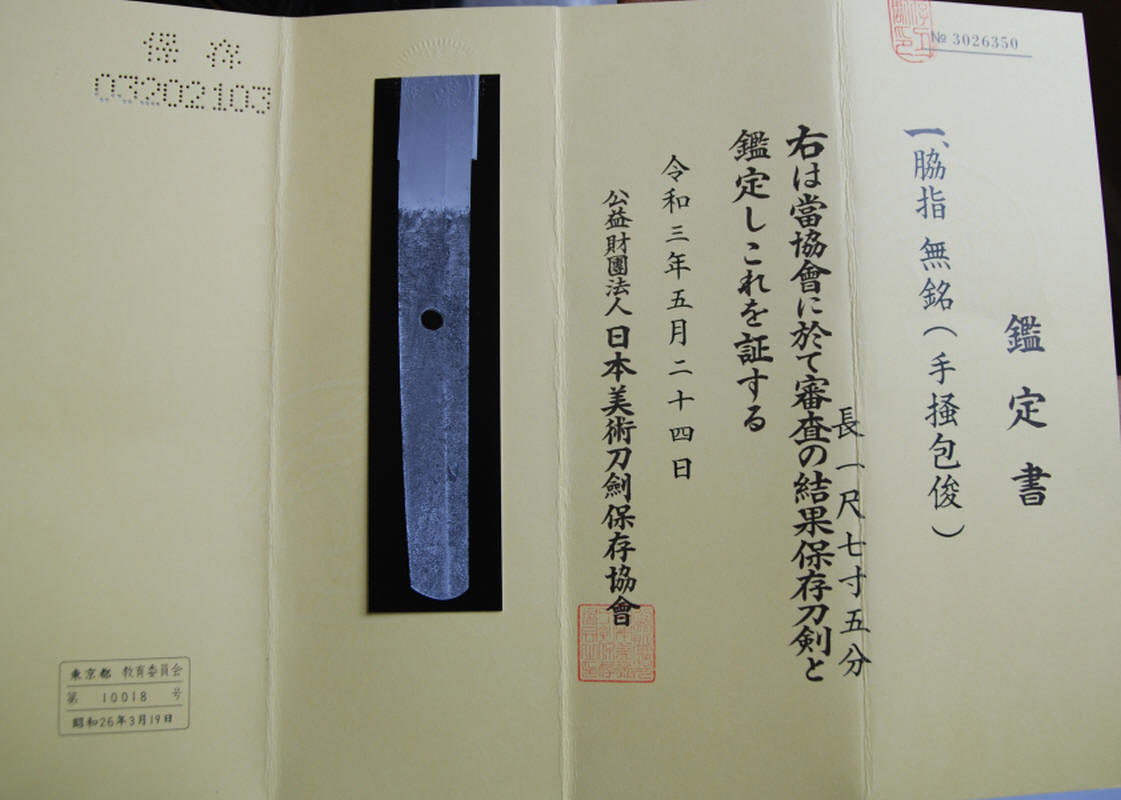 № 3026350
鑑定書
一、脇指 無銘（手掻包俊）
長一尺七寸五分
右は當協會に於て審査の結果保存刀剣と
鑑定しこれを証する
令和三年五月二十四日
公益財團法人日本美術刀劍保存協會
保存
03202103
東京都 教育委員会
第 10018 号
昭和26年3月19日